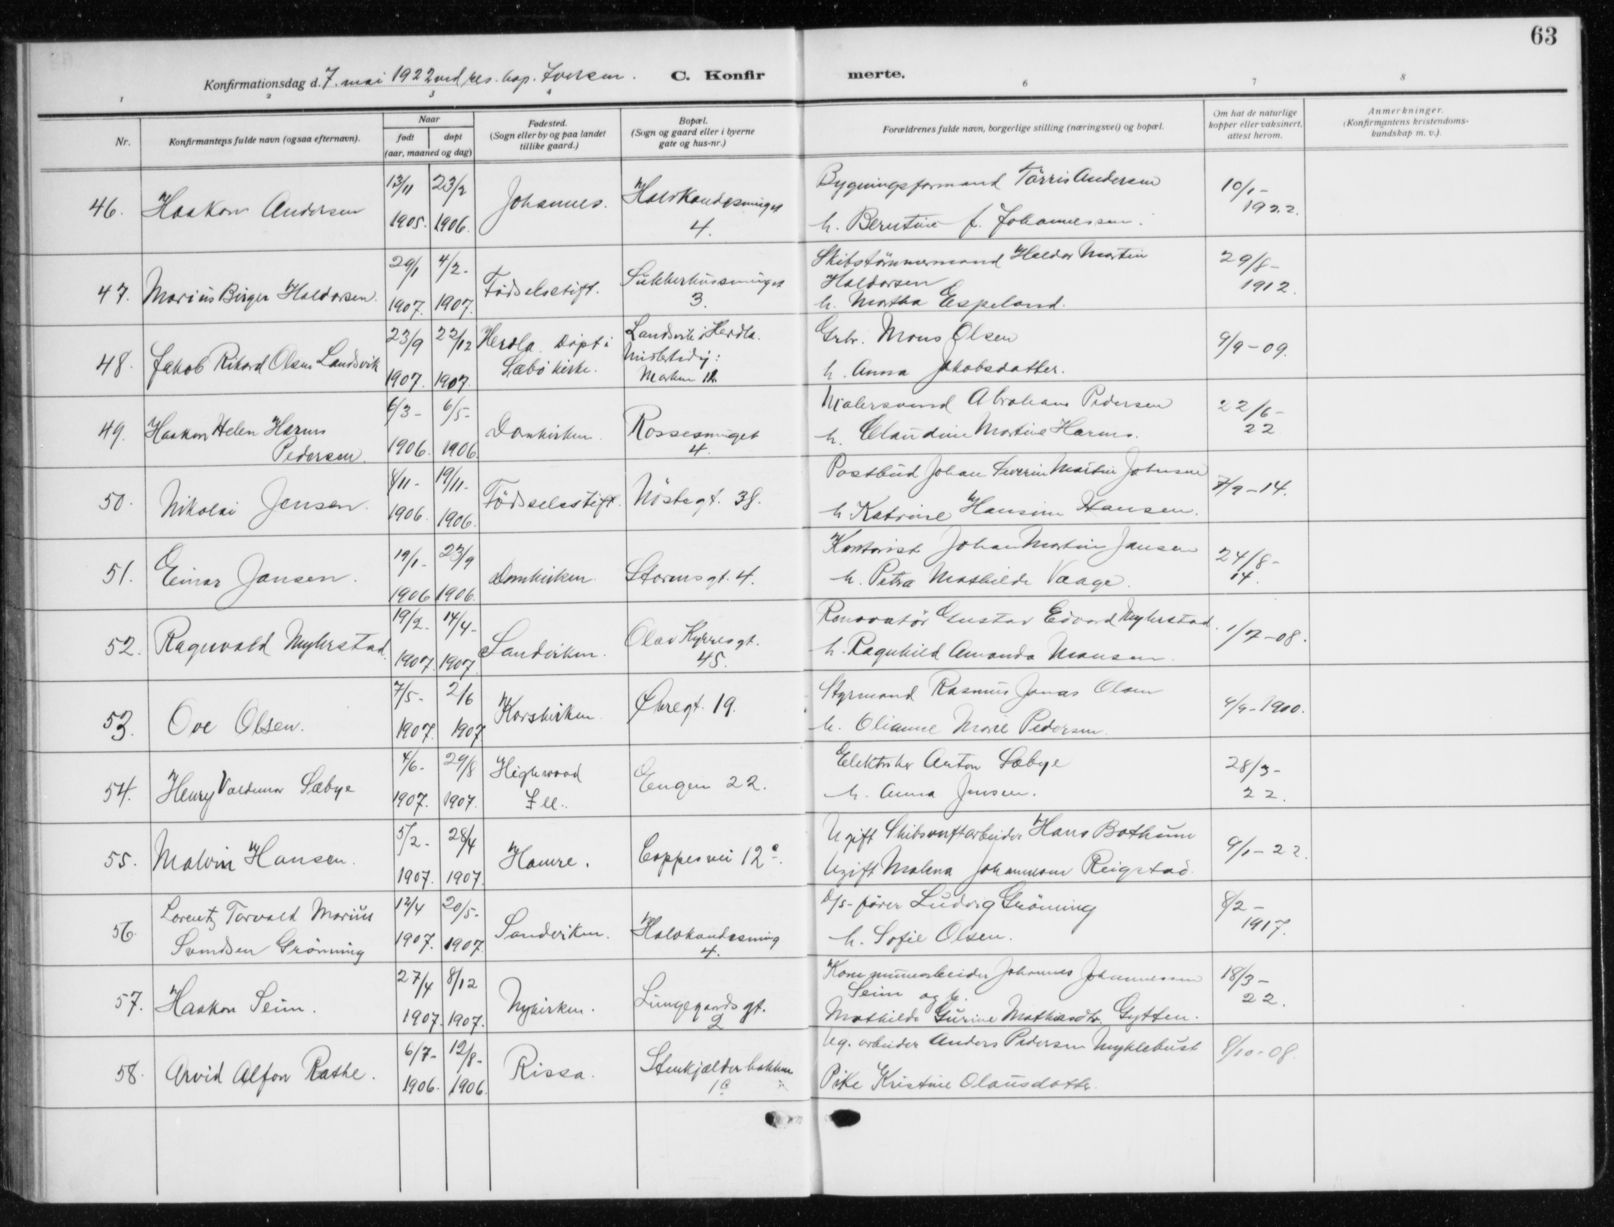 63
Konfirmationsdag d. 7. mai 1922 ved res. kap. Iversen. C. Konfir merte.
1 2 3 4 6 7 8
Nr. Konfirmantens fulde navn (ogsaa efternavn). Naar født døpt (aar, maaned og dag) Fødested. (Sogn eller by og paa landet tillike gaard.) Bopæl. (Sogn og gaard eller i byerne gate og hus-nr.) Forældrenes fulde navn, borgerlige stilling (næringsvei) og bopæl. Om hat de naturlige kopper eller vaksinert, attest herom. Anmerkninger. (Konfirmantens kristendoms-kundskap m. v.).
13/11 23/2 Bygningsformand Tørris Andersen 10/1-
46. Haakon Andersen Johannes. Halvkandesmuget 1922.
1905. 1906. 4. h. Berntine f. Johannessen.
29/1 4/2- Skibstømmermand Haldor Martin 29/8-
47. Marius Birger Haldorsen. Fødselsstift. Sukkerhussmuget Haldorsen 1912.
1907. 1907. 3. h. Martha Espeland.
23/9 22/12 Herdla. Døpt i Landsvik i Herdla. Grbr. Mons Olsen 9/9-09.
48. Jakob Rikard Olsen Landsvik Sæbø kirke. Midlertidig:
1907. 1907. Marken 12. h. Anna Jakobsdatter.
6/3- 6/5- Malersvend Abraham Pedersen 22/6-
49. Haakon Helen Harms Domkirken. Rossesmuget 22
Pedersen. 1906. 1906. 4. h. Claudine Martine Harms.
8/11- 19/11- Postbud Johan Severin Martin Johnsen 7/9-14.
50. Nikolai Jensen. Fødselsstift. Nøstegt. 38.
1906. 1906. h. Katrine Hansine Hansen.
19/1- 23/9 Kontorist Johan Martin Jansen 24/8-
51. Einar Jansen. Domkirken. Stormsgt. 4. 14.
1906 1906. h. Petra Mathilde Vaage.
19/2- 14/4- Renovatør Gustav Edvard Myhrstad. 1/7-08.
52. Ragnvald Myhrstad. Sandviken. Olav Kyrresgt.
1907 1907. 45. h. Ragnhild Amanda Monsen.
7/5- 2/6 Styrmand Rasmus Jonas Olsen 4/9-1900.
53. Ove Olsen. Korskirken. Øvregt. 19.
1907. 1907 h. Olianne Marie Pedersen.
4/6- 29/8 Highwood Elektriker Anton Sæbye 28/3-
54. Henry Valdemar Sæbye Ill. Engen 22. 22.
1907. 1907. h. Anna Jensen.
5/2- 28/4 Ugift Skibsverftarbeider Hans Bothun 9/1-22.
55. Malvin Hansen. Hamre. Coppesvei 12c.
1907. 1907. Ugift Malena Johannesen Reigstad.
Lorentz Torvald Marius 12/4 20/5- D/S-fører Ludvig Grønning 8/2-
56. Sandviken. Halvkandesmug 1917.
Svendsen Grønning 1907. 1907. 4. h. Sofie Olsen.
27/4 8/12 Kommunearbeider Johannes Johannessen 18/3-
57. Haakon Seim. Nykirken. Lungegaardsgt. Seim og h. 22.
1907. 1907. 2 Mathilde Gurine Mathiasdtr. Gytten.
6/7- 12/8- Ug. arbeider Anders Pedersen Myklebust 8/10-08.
58. Arvid Alfon Rathe. Rissa. Stenkjælderbakken
1906. 1906. 1c Pike Kristine Olausdatter.